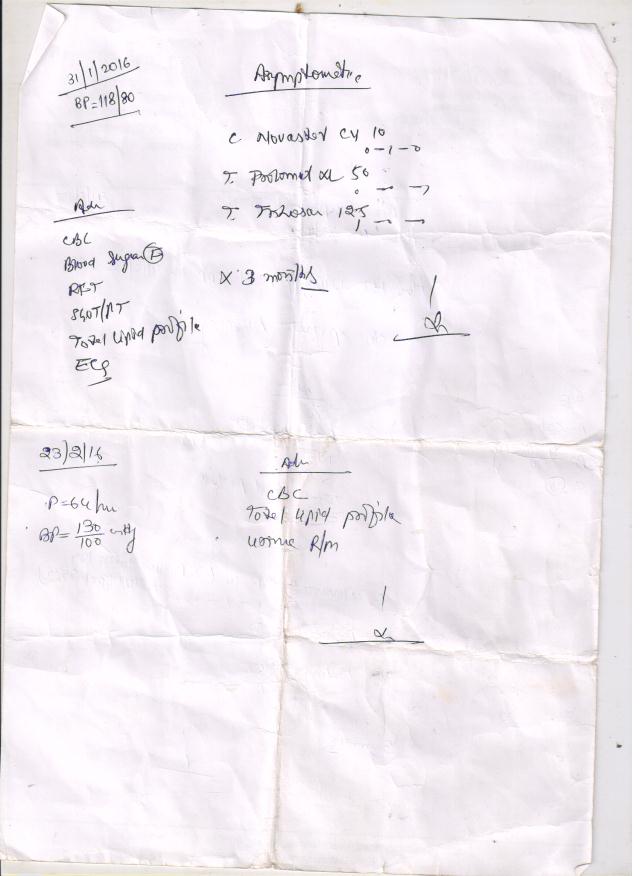 31/1/2016
BP=118/80
Asymptomatic
C Novastat CV 10
0-1-0
T. Prolomet XL 50
T. 125
1 - -
Adv
CBC
Blood Sugar F
RFT
SGOT/PT
Total Lipid profile
ECG
X 3 months
23/2/16
P=64/m
BP= 130/100 mmHg
Adv
CBC
Total Lipid profile
Urine R/m